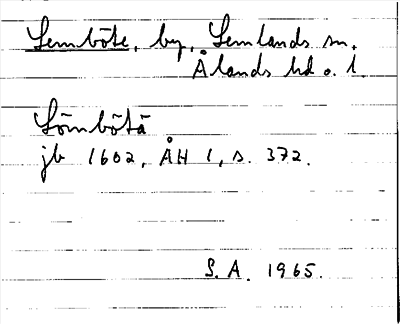 Lemböte, by, Lemlands sn,
Ålands hd o. l.
Lömbötä
jb 1602, ÅH 1, s. 372.
S. A. 1965.